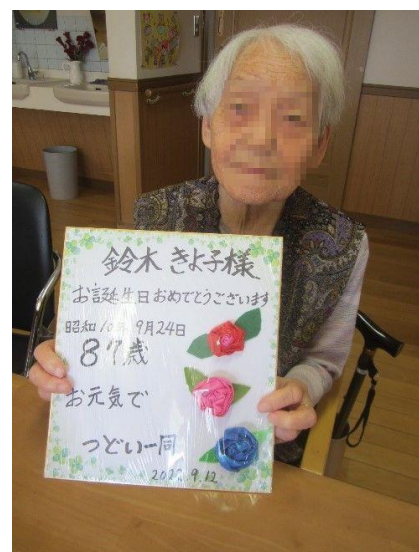 鈴木 きよ子様
お誕生日おめでとうございます
昭和10年9月24日
87歳
お元気で
つどい一同
2022.9.12